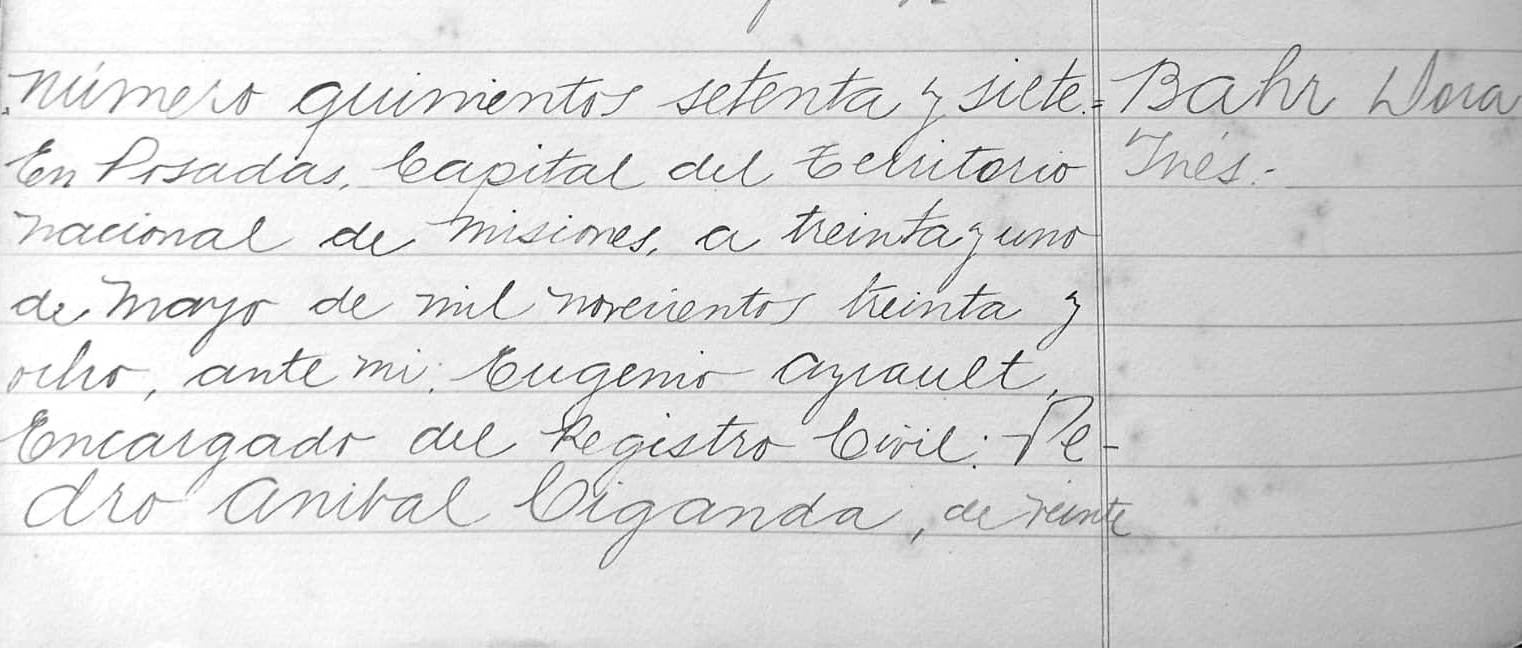 Número quinientos setenta y siete.=
En Posadas, Capital del Territorio
nacional de Misiones, a treinta y uno
de Mayo de mil novecientos treinta y
ocho, ante mi: Eugenio Ayrault,
Encargado del Registro Civil: Pe-
dro Anibal Ciganda, de veinte
Bahr Dora
Inés.-